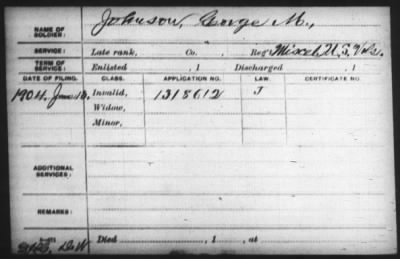 NAME OF SOLDIER: Johnson, George M.,
SERVICE: Late rank, Co. , Reg't Miscel. U.S. Vols.
TERM OF SERVICE: Enlisted , 1 Discharged , 1
DATE OF FILING. CLASS. APPLICATION NO. LAW. CERTIFICATE NO.
1904, Invalid, 1318612 J
Widow,
Minor,
ADDITIONAL SERVICES:
REMARKS:
Died , 1 , at